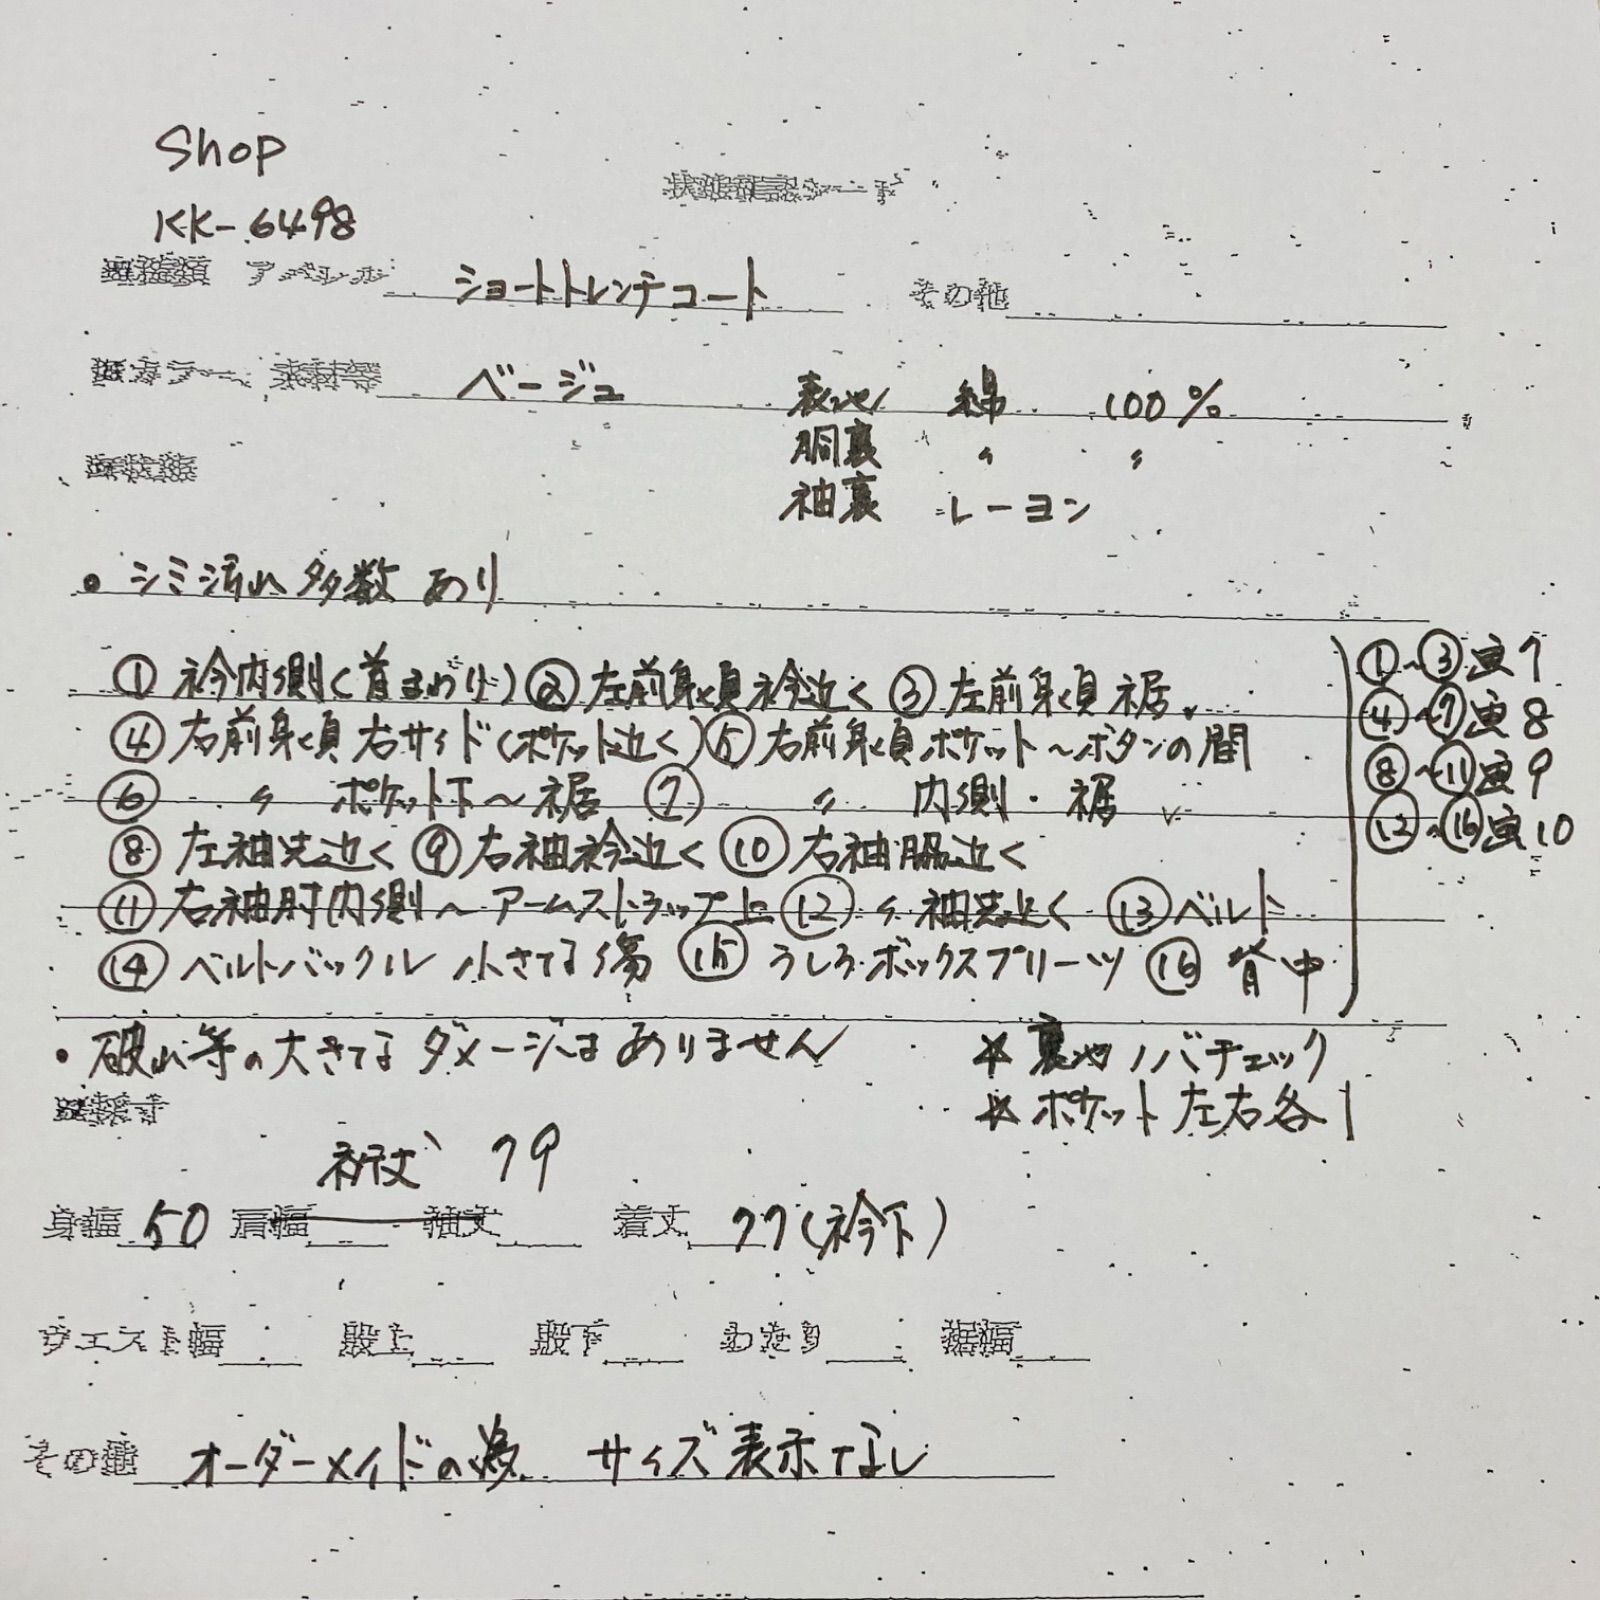 Shop
状態確認シート
KK-6498
アパレル ショートトレンチコート その他
カラー、素材等 ベージュ 表地 綿 100%
胴裏 〃 〃
袖裏 レーヨン
・シミ汚れ 多数 あり
① 衿内側(首まわり) ② 左前身頃 衿近く ③ 左前身頃 裾 ①〜③画7
④ 右前身頃 右サイド(ポケット近く) ⑤ 右前身頃 ポケット〜ボタンの間 ④〜⑦画8
⑥ 〃 ポケット下〜裾 ⑦ 〃 内側・裾 ⑧〜⑪画9
⑧ 左袖先近く ⑨ 右袖衿近く ⑩ 右袖脇近く ⑫〜⑯画10
⑪ 右袖肘内側〜アームストラップ上 ⑫ 〃 袖先近く ⑬ ベルト
⑭ ベルトバックル 小さな傷 ⑮ うしろボックスプリーツ ⑯ 背中
・破れ等の大きなダメージはありません ＊裏地ノバチェック
採寸 ＊ポケット左右各1
裄丈 79
身幅 50 肩幅 袖丈 着丈 77(衿下)
ウエスト幅 股上 股下 わたり 裾幅
その他 オーダーメイドの為 サイズ表示なし